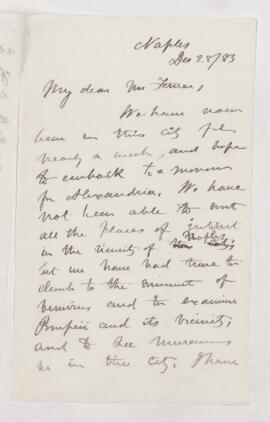 Naples
Dec 28/83
My dear Mr Ferrier,
We have now
been in this city for
nearly a week, and hope
to embark to-morrow
for Alexandria. We have
not been able to visit
all the places of interest
in the vicinity of Naples,
but we have had time to
climb to the summit of
Vesuvius and to examine
Pompeii and its vicinity,
and to see museums
&c in the city. I have